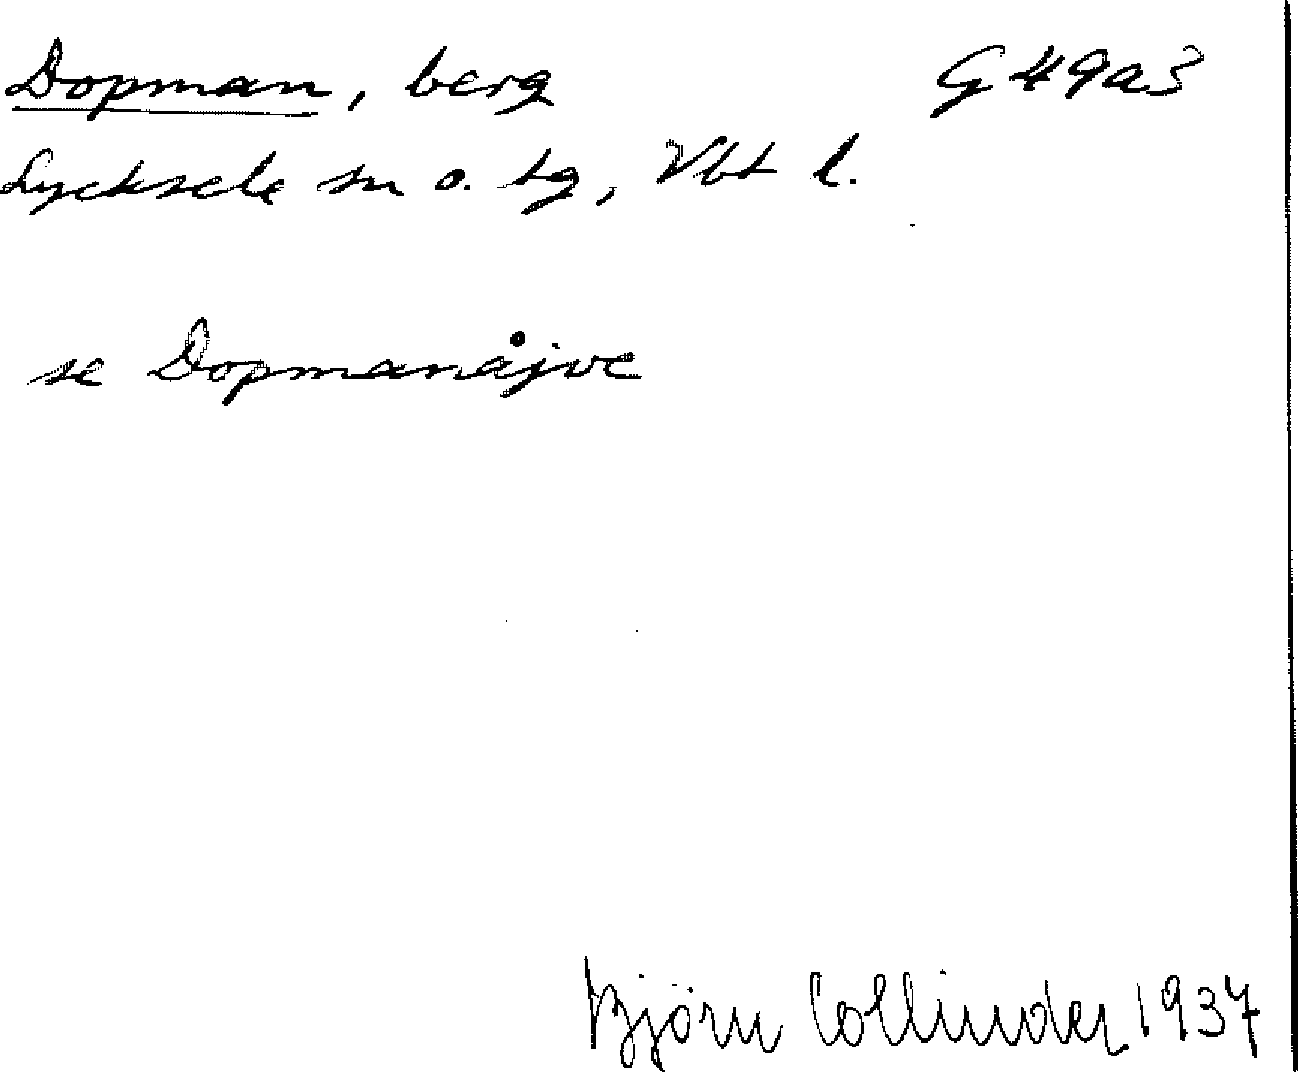 Dopman, berg G49a3
Lycksele sn o. tg, Vbt l.
se Dopmanåjve
Björn Collinder 1937